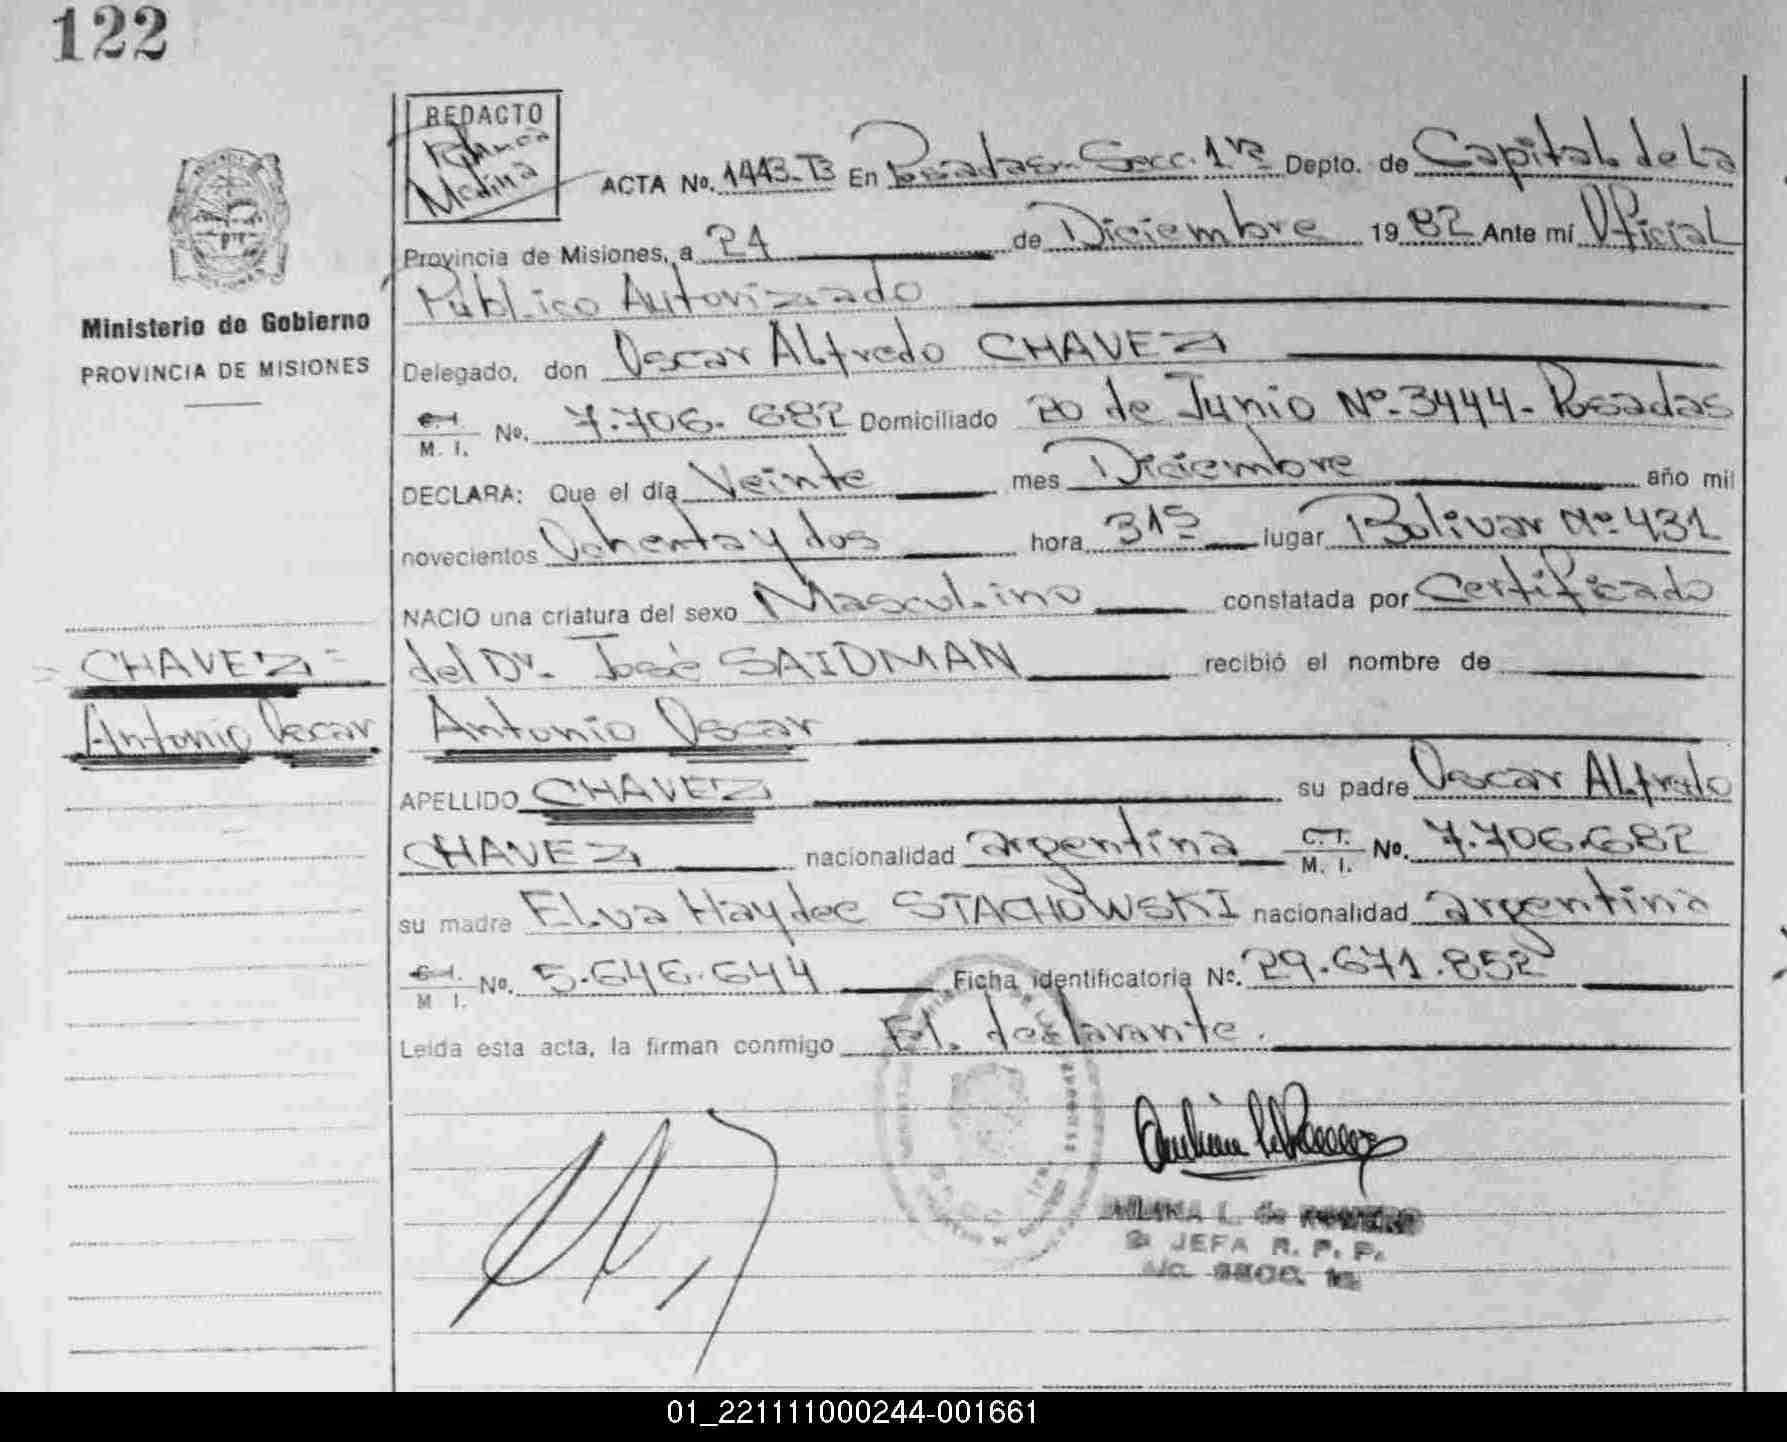 122
REDACTO
Medina
ACTA No. 1443-T3 En Posadas-Secc. 1ra Depto. de Capital de La
Provincia de Misiones, a 24 de Diciembre 1982 Ante mí Oficial
Público Autorizado
Ministerio de Gobierno
PROVINCIA DE MISIONES
Delegado, don Oscar Alfredo CHAVEZ
M. I. No. 7.706.682 Domiciliado 20 de Junio Nº-3444-Posadas
DECLARA: Que el día Veinte mes Diciembre año mil
novecientos Ochenta y dos hora 315 lugar Bolivar Nº 431
NACIO una criatura del sexo Masculino constatada por Certificado
del Dr. José SAIDMAN recibió el nombre de
CHAVEZ=
Antonio Oscar
Antonio Oscar
APELLIDO CHAVEZ su padre Oscar Alfredo
CHAVEZ nacionalidad argentina C.I. M. I. No. 7.706.682
su madre Elva Haydee STACHOWSKI nacionalidad argentina
M I. No. 5.646.644 Ficha identificatoria No. 29.671.852
Leída esta acta, la firman conmigo El declarante.
L. de ROMERO
JEFA R. P. P.
A/c. SECC. 1a
01_221111000244-001661